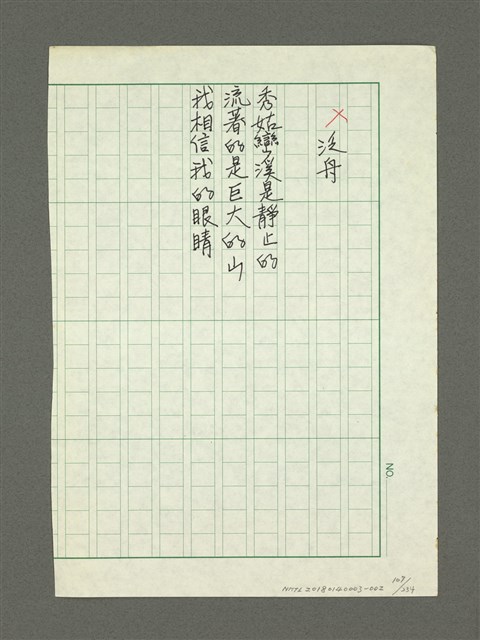 泛舟
秀姑巒溪是靜止的
流著的是巨大的山
我相信我的眼睛
NO.
NMTL20180140003-002
107/234